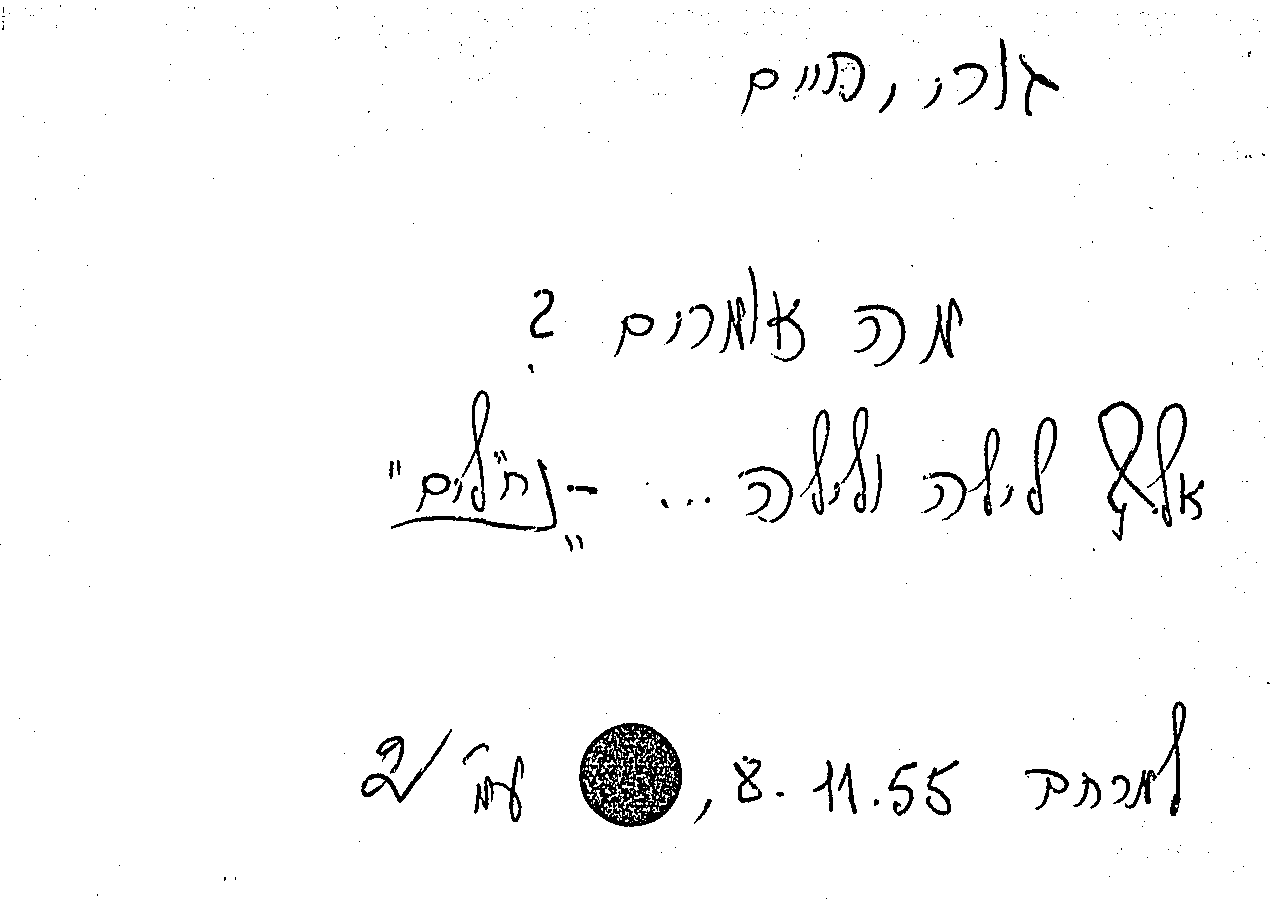 גורי, חיים
מה אומרים?
אלף לילה ולילה... - "נח"לים"
למרחב 8.11.55, עמ' 2